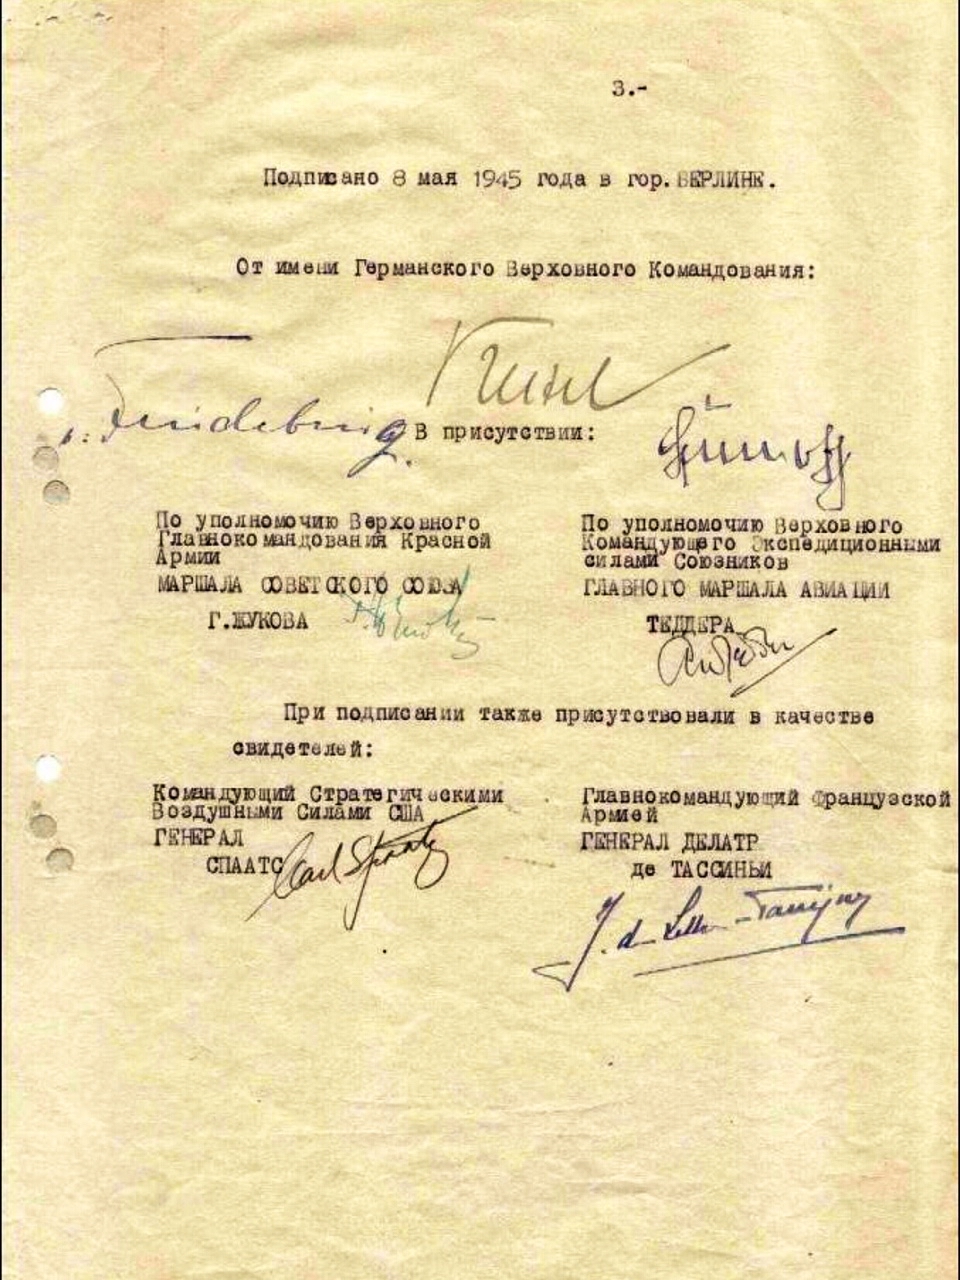 3.-
Подписано 8 мая 1945 года в гор. БЕРЛИНЕ.
От имени Германского Верховного Командования:
Keitel
v. Friedeburg
В присутствии:
Stumpff
По уполномочию Верховного
Главнокомандования Красной
Армии
МАРШАЛА СОВЕТСКОГО СОЮЗА
Г.ЖУКОВА
По уполномочию Верховного
Командующего Экспедиционными
силами Союзников
ГЛАВНОГО МАРШАЛА АВИАЦИИ
ТЕДДЕРА
При подписании также присутствовали в качестве
свидетелей:
Командующий Стратегическими
Воздушными Силами США
ГЕНЕРАЛ
СПААТС
Carl Spaatz
Главнокомандующий Французской
Армией
ГЕНЕРАЛ ДЕЛАТР
де ТАССИНЬИ
J. de Lattre-Tassigny